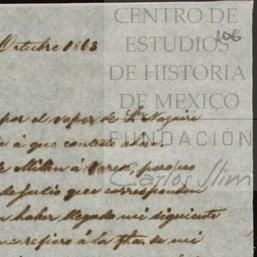 CENTRO DE
ESTUDIOS
DE HISTORIA
DE MEXICO
FUNDACIÓN
Carlos Slim
106
Octubre 1863
por el vapor de St Nazaire
á que contesto
Milan á
de Julio que corresponden
haber llegado mi siguiente
me refiero á la flha de mi